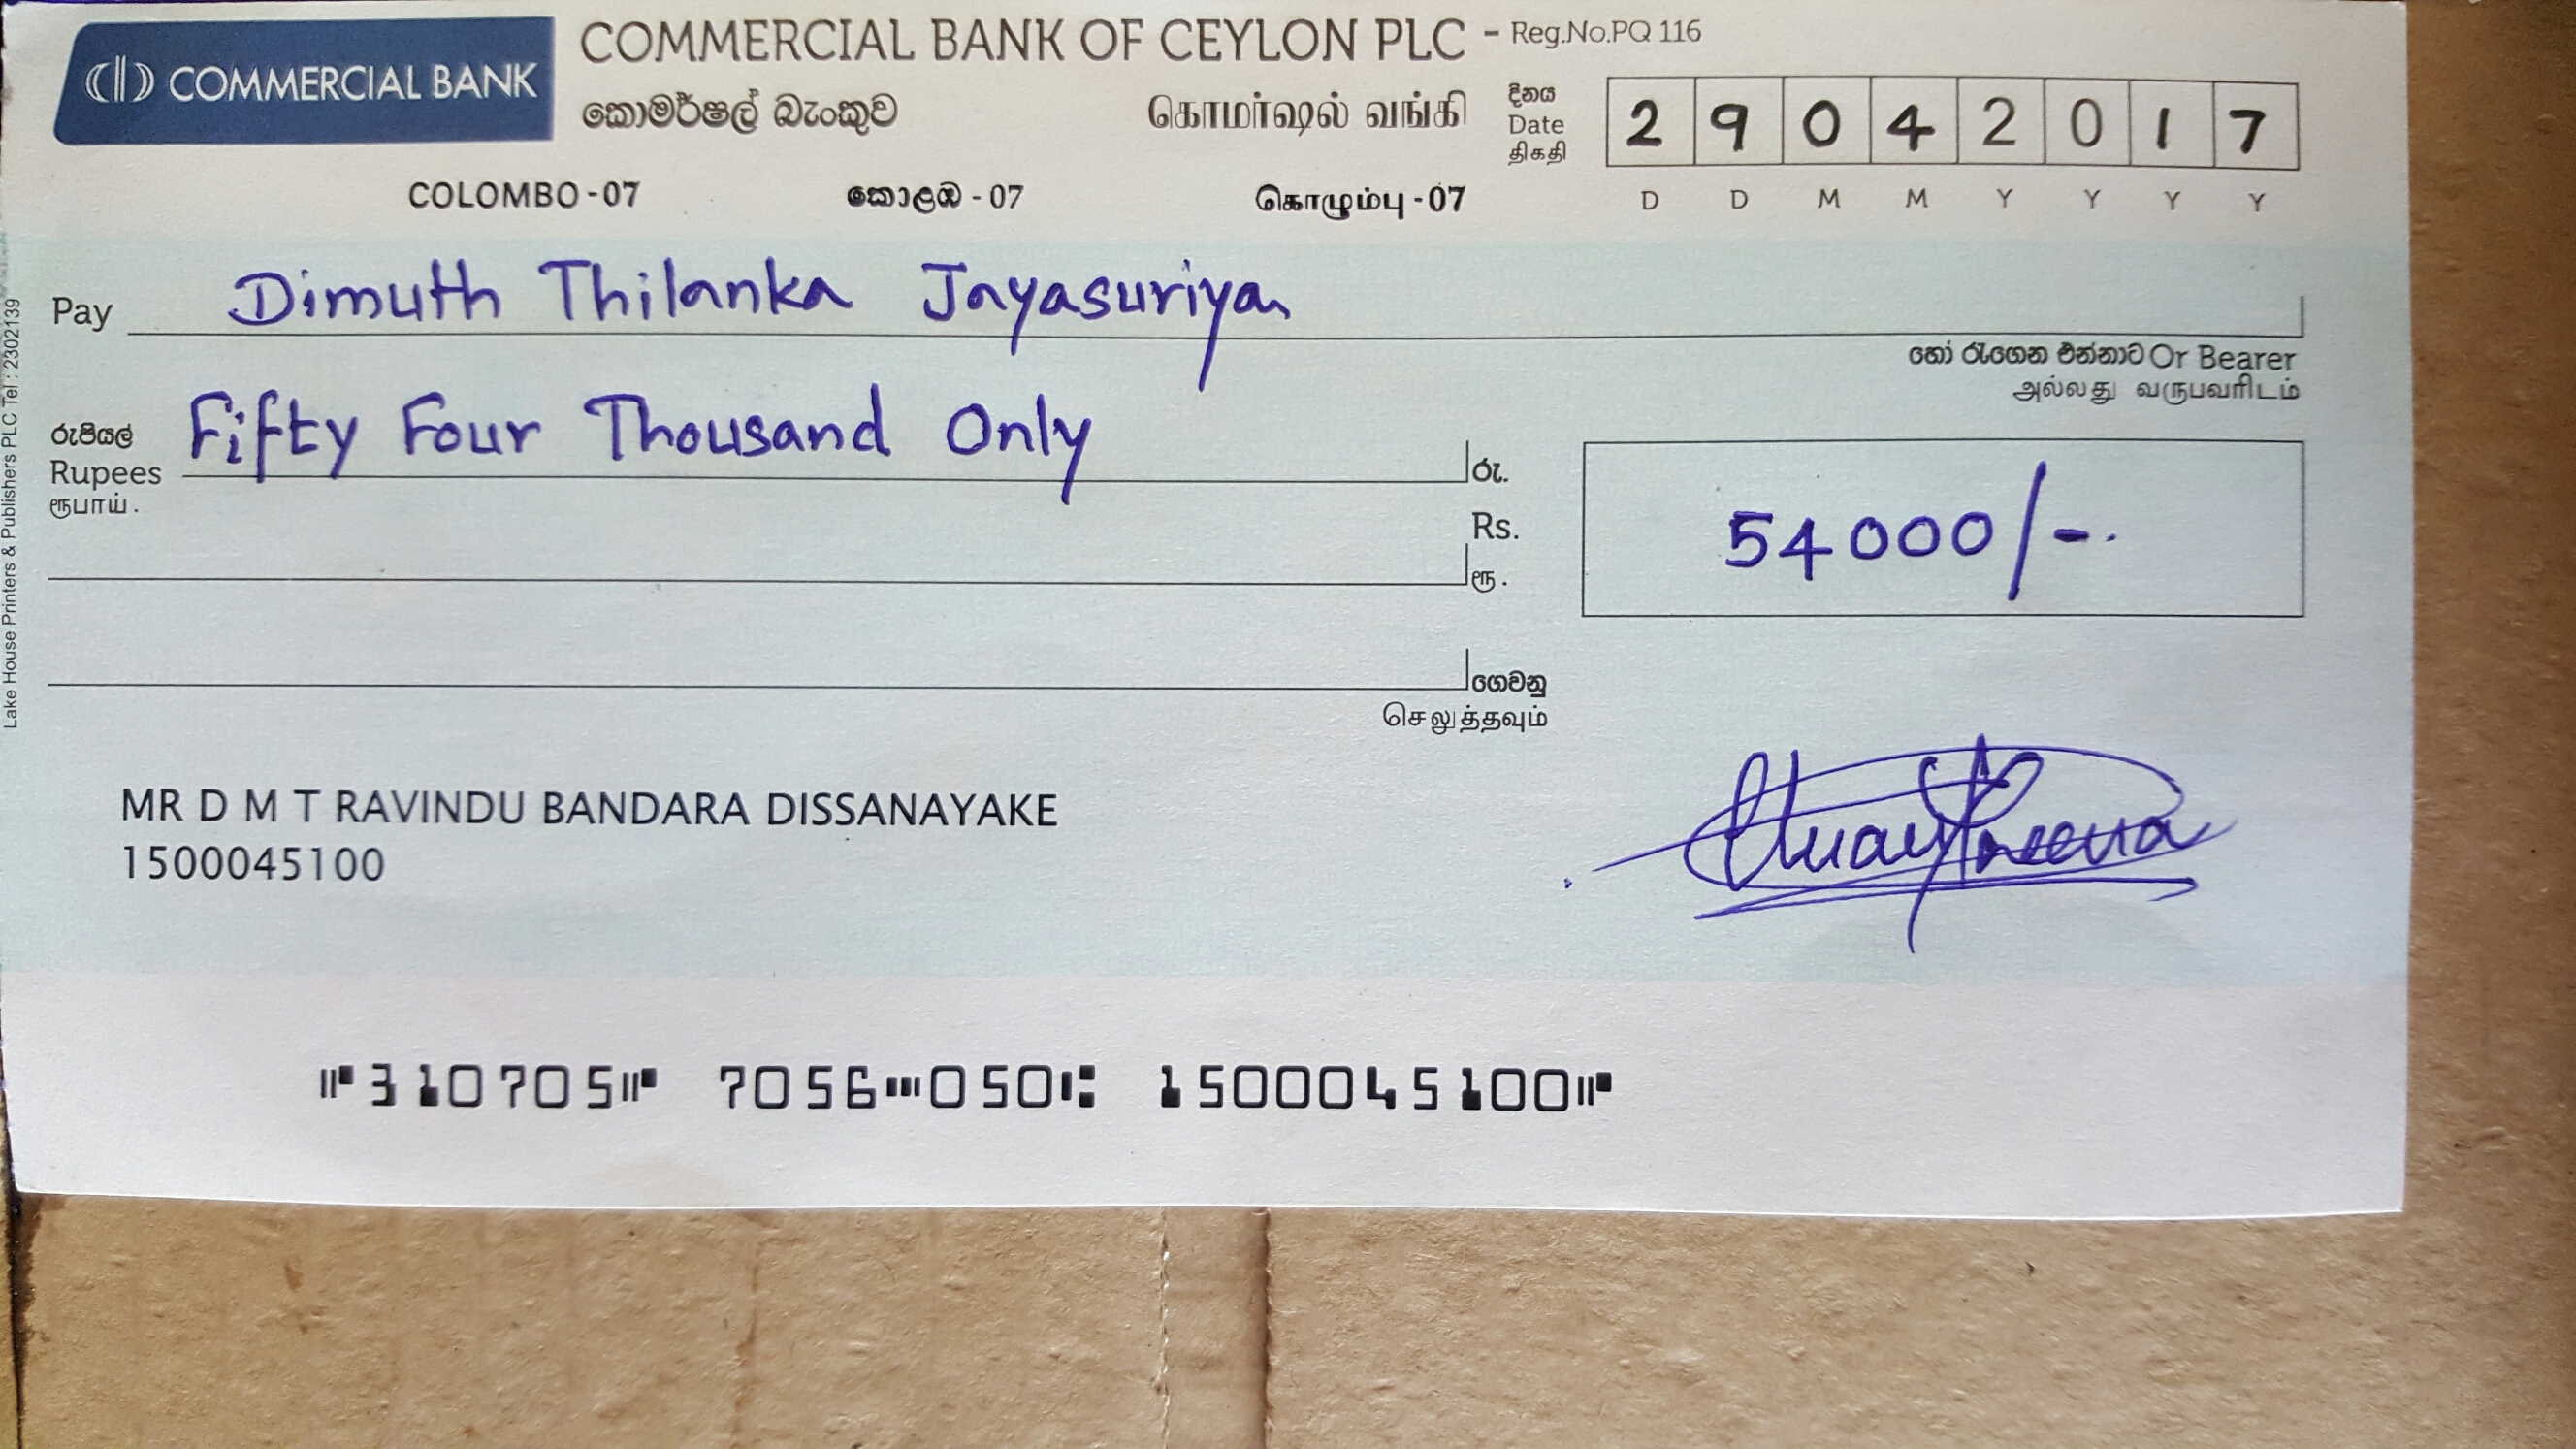 COMMERCIAL BANK
COMMERCIAL BANK OF CEYLON PLC - Reg.No.PQ 116
කොමර්ෂල් බැංකුව கொமர்ஷல் வங்கி
දිනය
Date
திகதி
2 9 0 4 2 0 1 7
D D M M Y Y Y Y
COLOMBO - 07 කොළඹ - 07 கொழும்பு - 07
Pay Dimuth Thilanka Jayasuriya
හෝ රැගෙන එන්නාට Or Bearer
அல்லது வருபவரிடம்
රුපියල්
Rupees Fifty Four Thousand Only
ரூபாய் .
රු.
Rs.
ரூ .
54000/-.
ගෙවනු
செலுத்தவும்
MR D M T RAVINDU BANDARA DISSANAYAKE
1500045100
⑈310705⑈ 7056⑉050⑆ 1500045100⑈
Lake House Printers & Publishers PLC Tel : 2302139